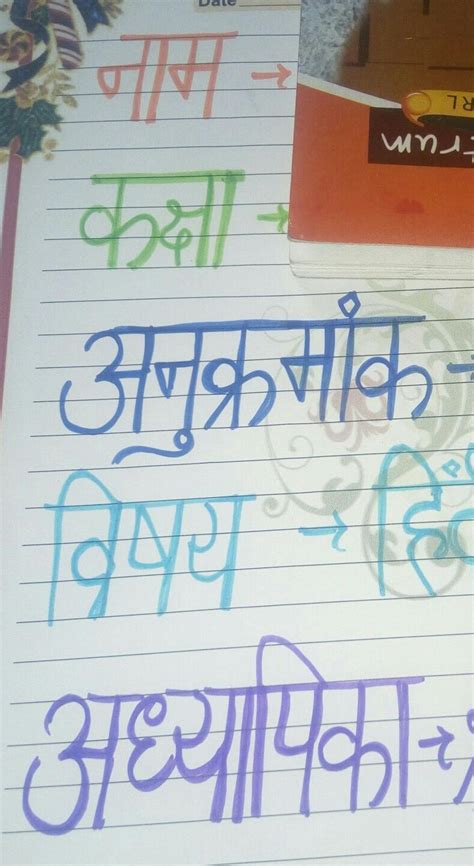 Date
नाम →
कक्षा →
अनुक्रमांक →
विषय →
अध्यापिका →